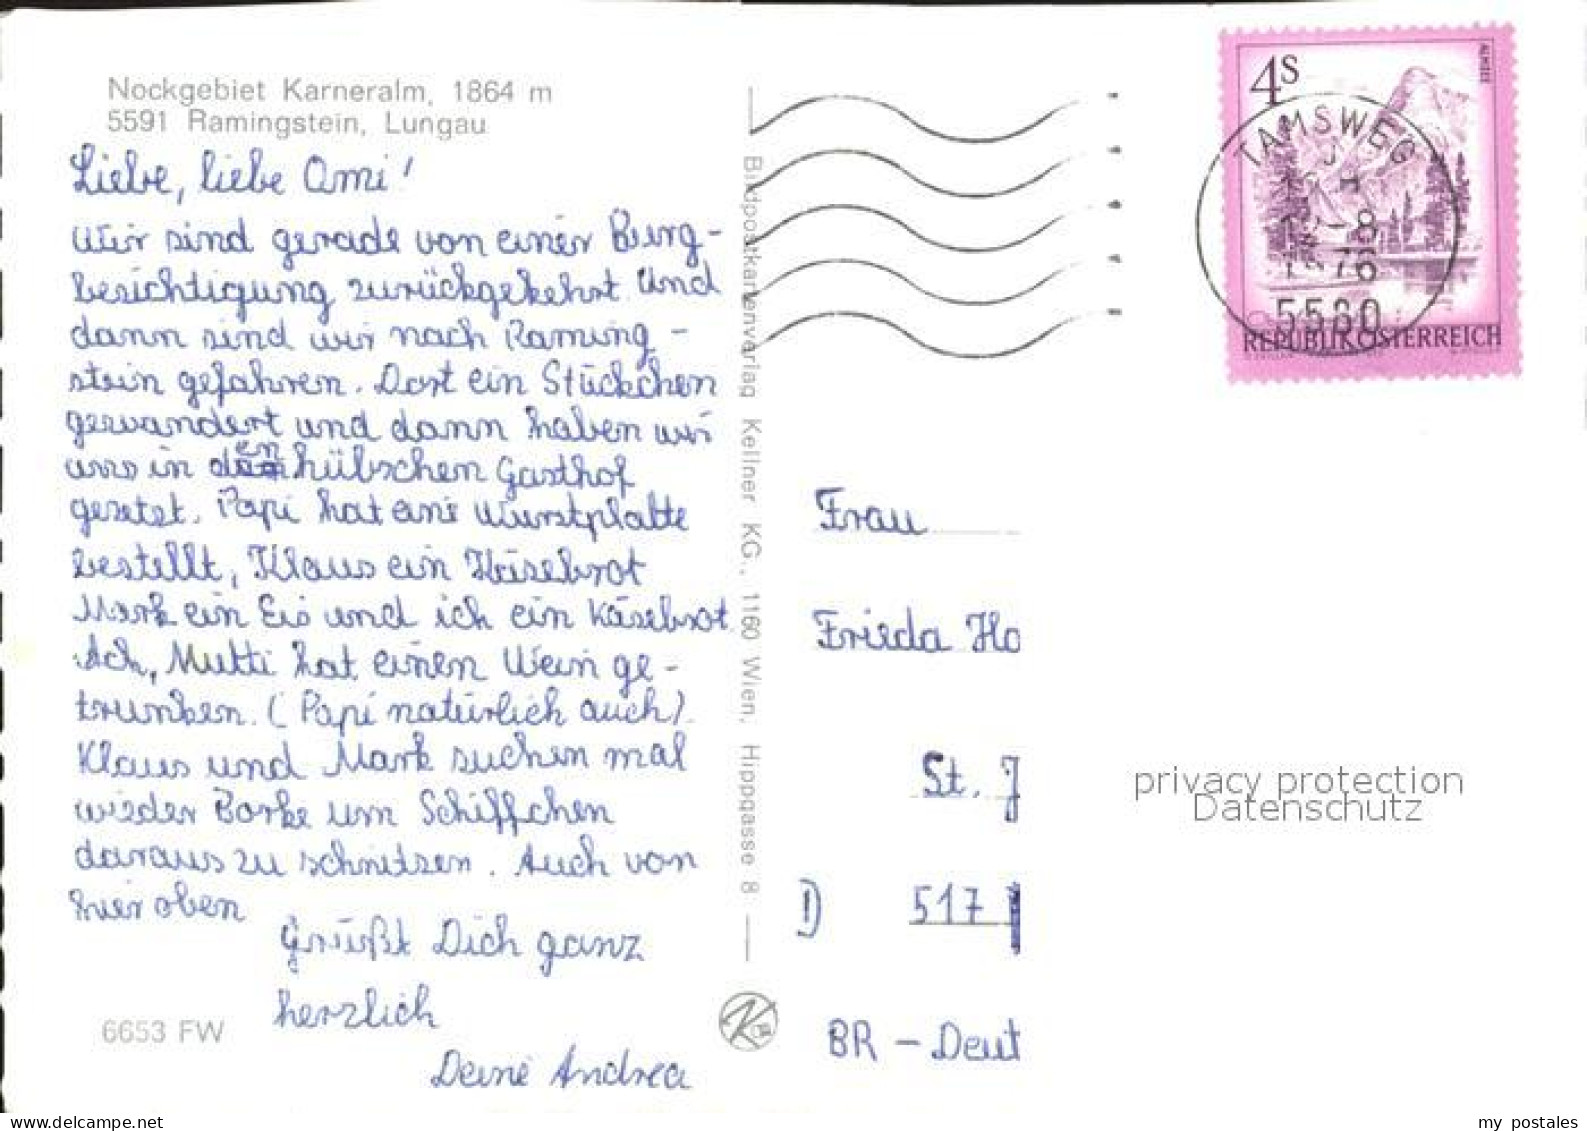 Nockgebiet Karneralm, 1864 m
5591 Ramingstein, Lungau
Liebe, liebe Omi!
Wir sind gerade von einer Burg-
besichtigung zurückgekehrt. Und
dann sind wir nach Raming-
stein gefahren. Dort ein Stückchen
gewandert und dann haben wir
uns in den hübschen Gasthof
gesetzt. Papi hat eine Wurstplatte
bestellt, Klaus ein Käsebrot
Mark ein Eis und ich ein Käsebrot.
Ach, Mutti hat einen Wein ge-
trunken. (Papi natürlich auch).
Klaus und Mark suchen mal
wieder Borke um Schiffchen
daraus zu schnitzen. Auch von
hier oben
Grüßt Dich ganz
herzlich
Deine Andrea
6653 FW
Bildpostkartenverlag Kellner KG., 1160 Wien, Hippgasse 8
K
4S
ALMSEE
TAMSWEG
-8
76
5580
REPUBLIK ÖSTERREICH
Frau
Frieda Ho
St. J
D 517
BR - Deut
privacy protection
Datenschutz
delcampe.net
my postales